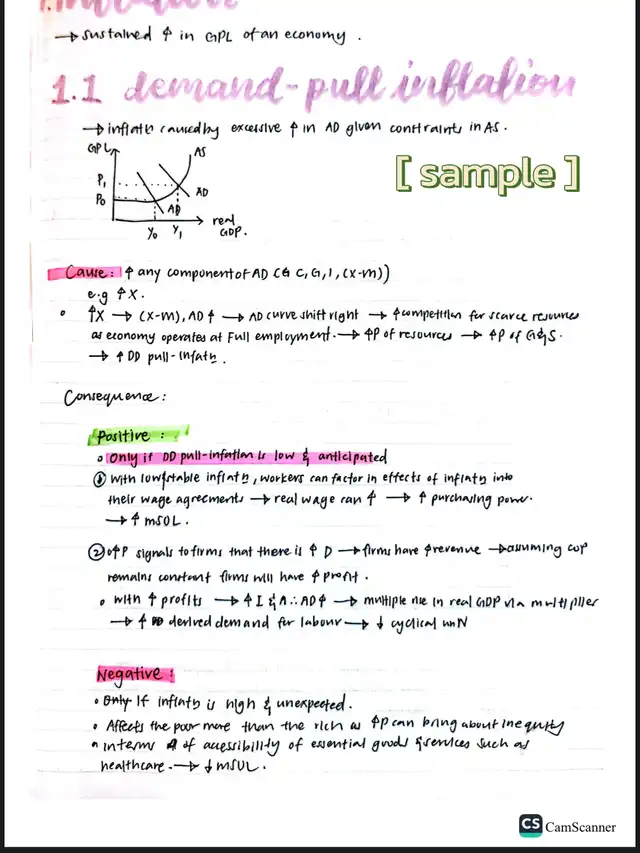 1. inflation
→ sustained ↑ in GPL of an economy.
1.1 demand-pull inflation
→ inflatn caused by excessive ↑ in AD given constraints in AS.
GPL
AS
P1
AD
P0
AD
real
GDP.
Y0 Y1
[ sample ]
Cause: ↑ any component of AD (C, G, I, (X-M))
e.g ↑X.
↑X → (X-M), AD↑ → AD curve shift right → ↑competition for scarce resources
as economy operates at Full employment. → ↑P of resources → ↑P of G&S.
→ ↑ DD pull-inflatn.
Consequence:
Positive :
Only if DD pull-inflation is low & anticipated
① with low/stable inflatn, workers can factor in effects of inflatn into
their wage agreements → real wage can ↑ → ↑ purchasing power.
→ ↑ MSOL.
② ↑P signals to firms that there is ↑ D → firms have ↑revenue → assuming COP
remains constant firms will have ↑ profit.
with ↑ profits → ↑ I & A ∴ AD↑ → multiple rise in real GDP via multiplier
→ ↑ derived demand for labour → ↓ cyclical unN
Negative :
Only if inflatn is high & unexpected.
Affects the poor more than the rich as ↑P can bring about inequity
in terms of accessibility of essential goods & services such as
healthcare. → ↓ MSOL.
CS CamScanner